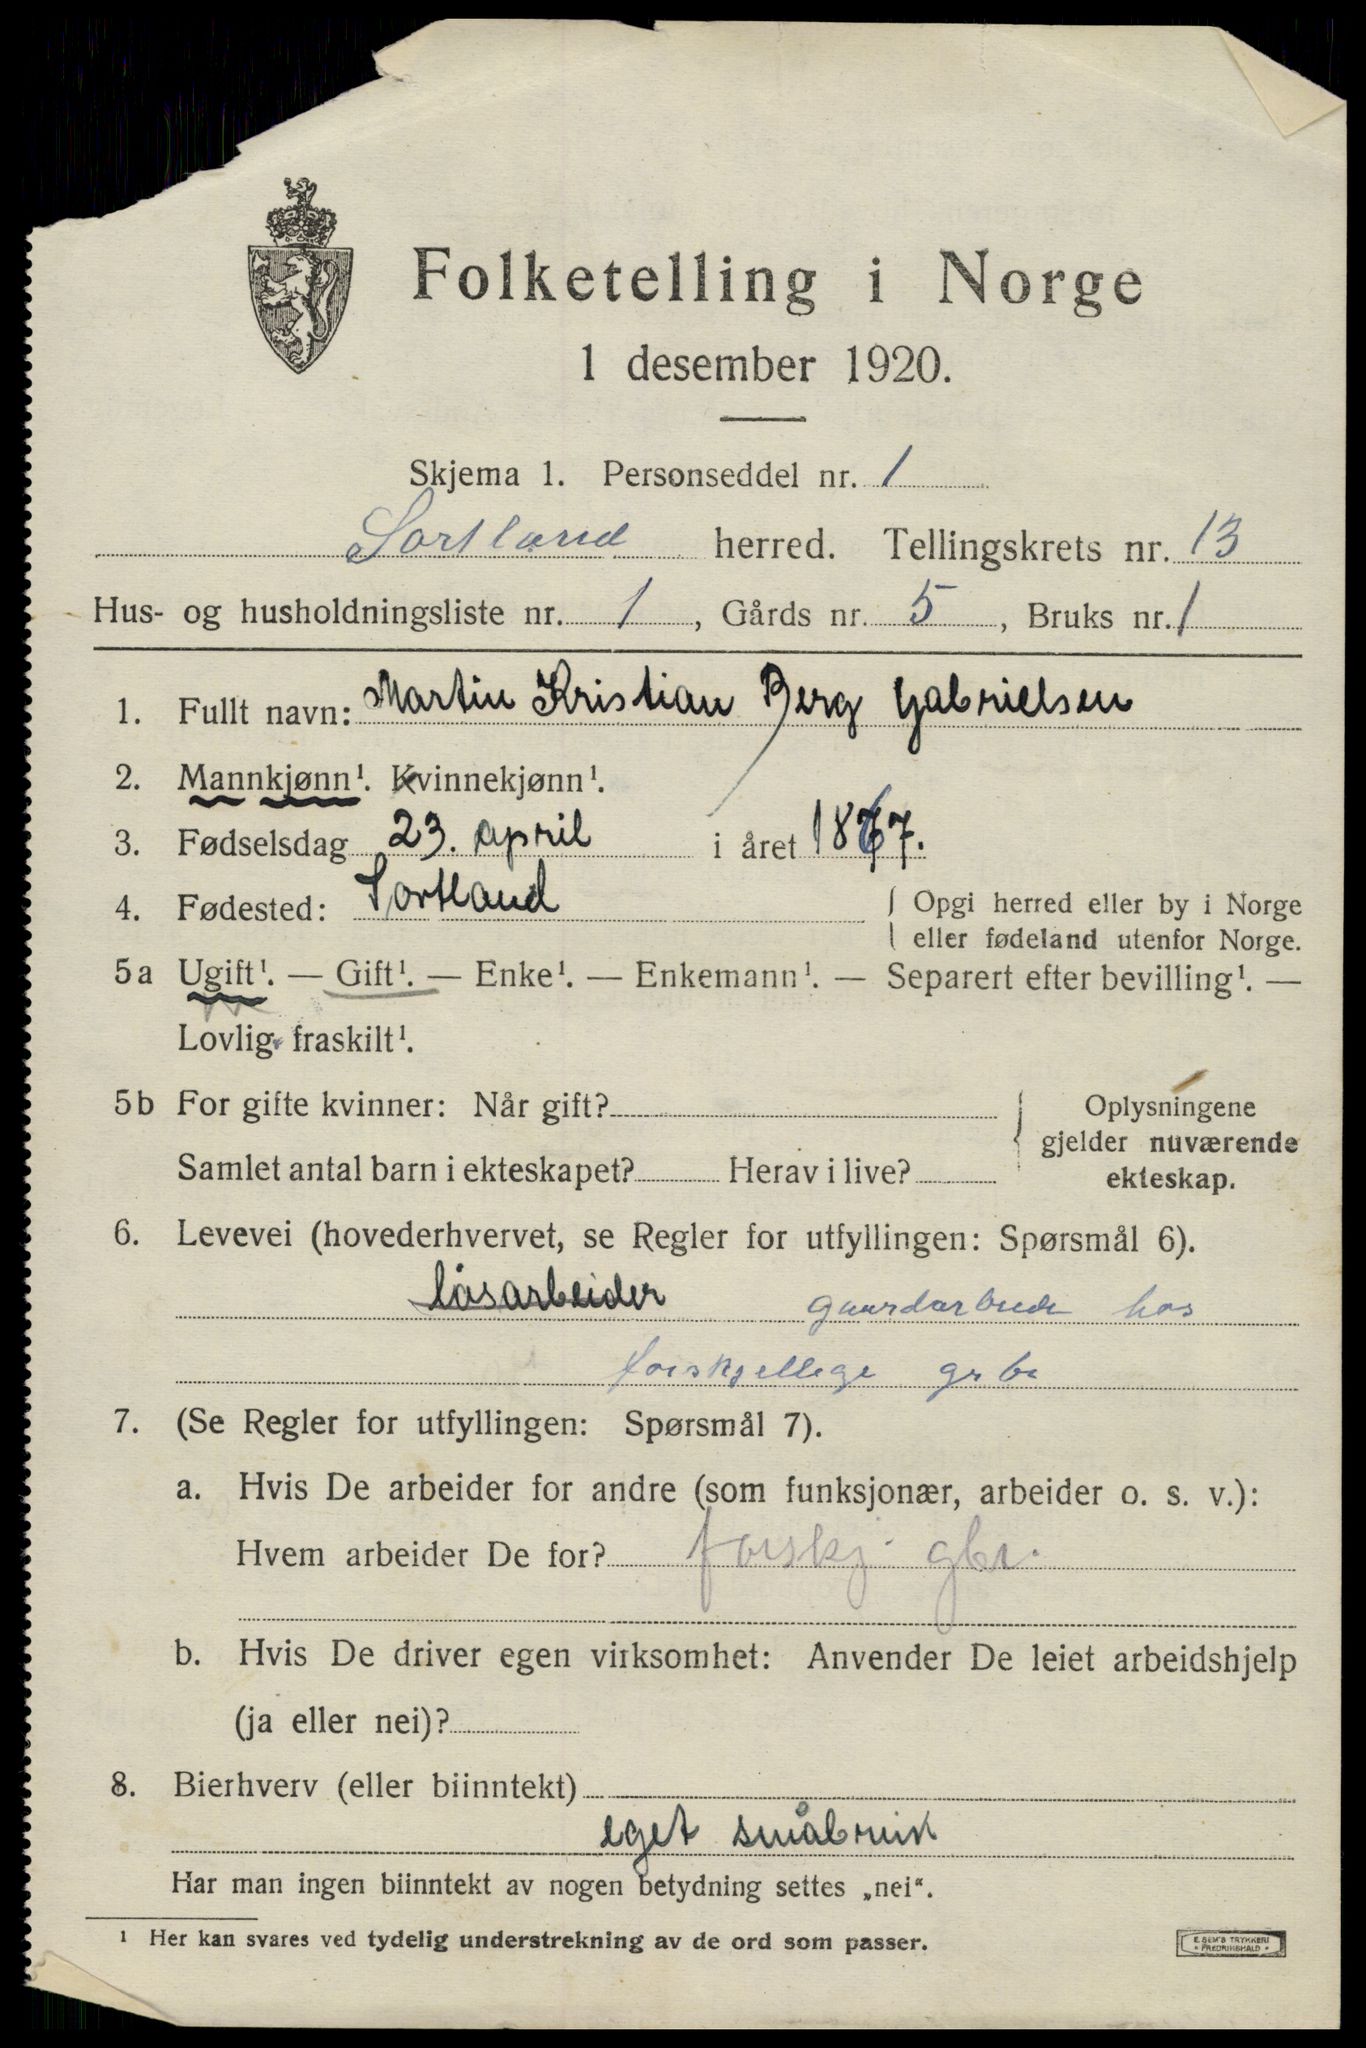 Folketelling i Norge
1 desember 1920.
Skjema 1. Personseddel nr. 1
Sortland herred. Tellingskrets nr. 13
Hus- og husholdningsliste nr. 1, Gårds nr. 5, Bruks nr. 1
1. Fullt navn: Martin Kristian Berg Gabrielsen
2. Mannkjønn¹. Kvinnekjønn¹.
3. Fødselsdag 23. april i året 1867.
4. Fødested: Sortland { Opgi herred eller by i Norge
eller fødeland utenfor Norge.
5a Ugift¹. — Gift¹. — Enke¹. — Enkemann¹. — Separert efter bevilling¹. —
Lovlig fraskilt¹.
5b For gifte kvinner: Når gift?
Samlet antal barn i ekteskapet? Herav i live?
Oplysningene
gjelder nuværende
ekteskap.
6. Levevei (hovederhvervet, se Regler for utfyllingen: Spørsmål 6).
løsarbeider gaardarbeide hos
forskjellige grbr
7. (Se Regler for utfyllingen: Spørsmål 7).
a. Hvis De arbeider for andre (som funksjonær, arbeider o. s. v.):
Hvem arbeider De for? forskj. gbr.
b. Hvis De driver egen virksomhet: Anvender De leiet arbeidshjelp
(ja eller nei)?
8. Bierhverv (eller biinntekt)
eget småbruk
Har man ingen biinntekt av nogen betydning settes „nei“.
¹ Her kan svares ved tydelig understrekning av de ord som passer.
E. SEM'S TRYKKERI
FREDRIKSHALD